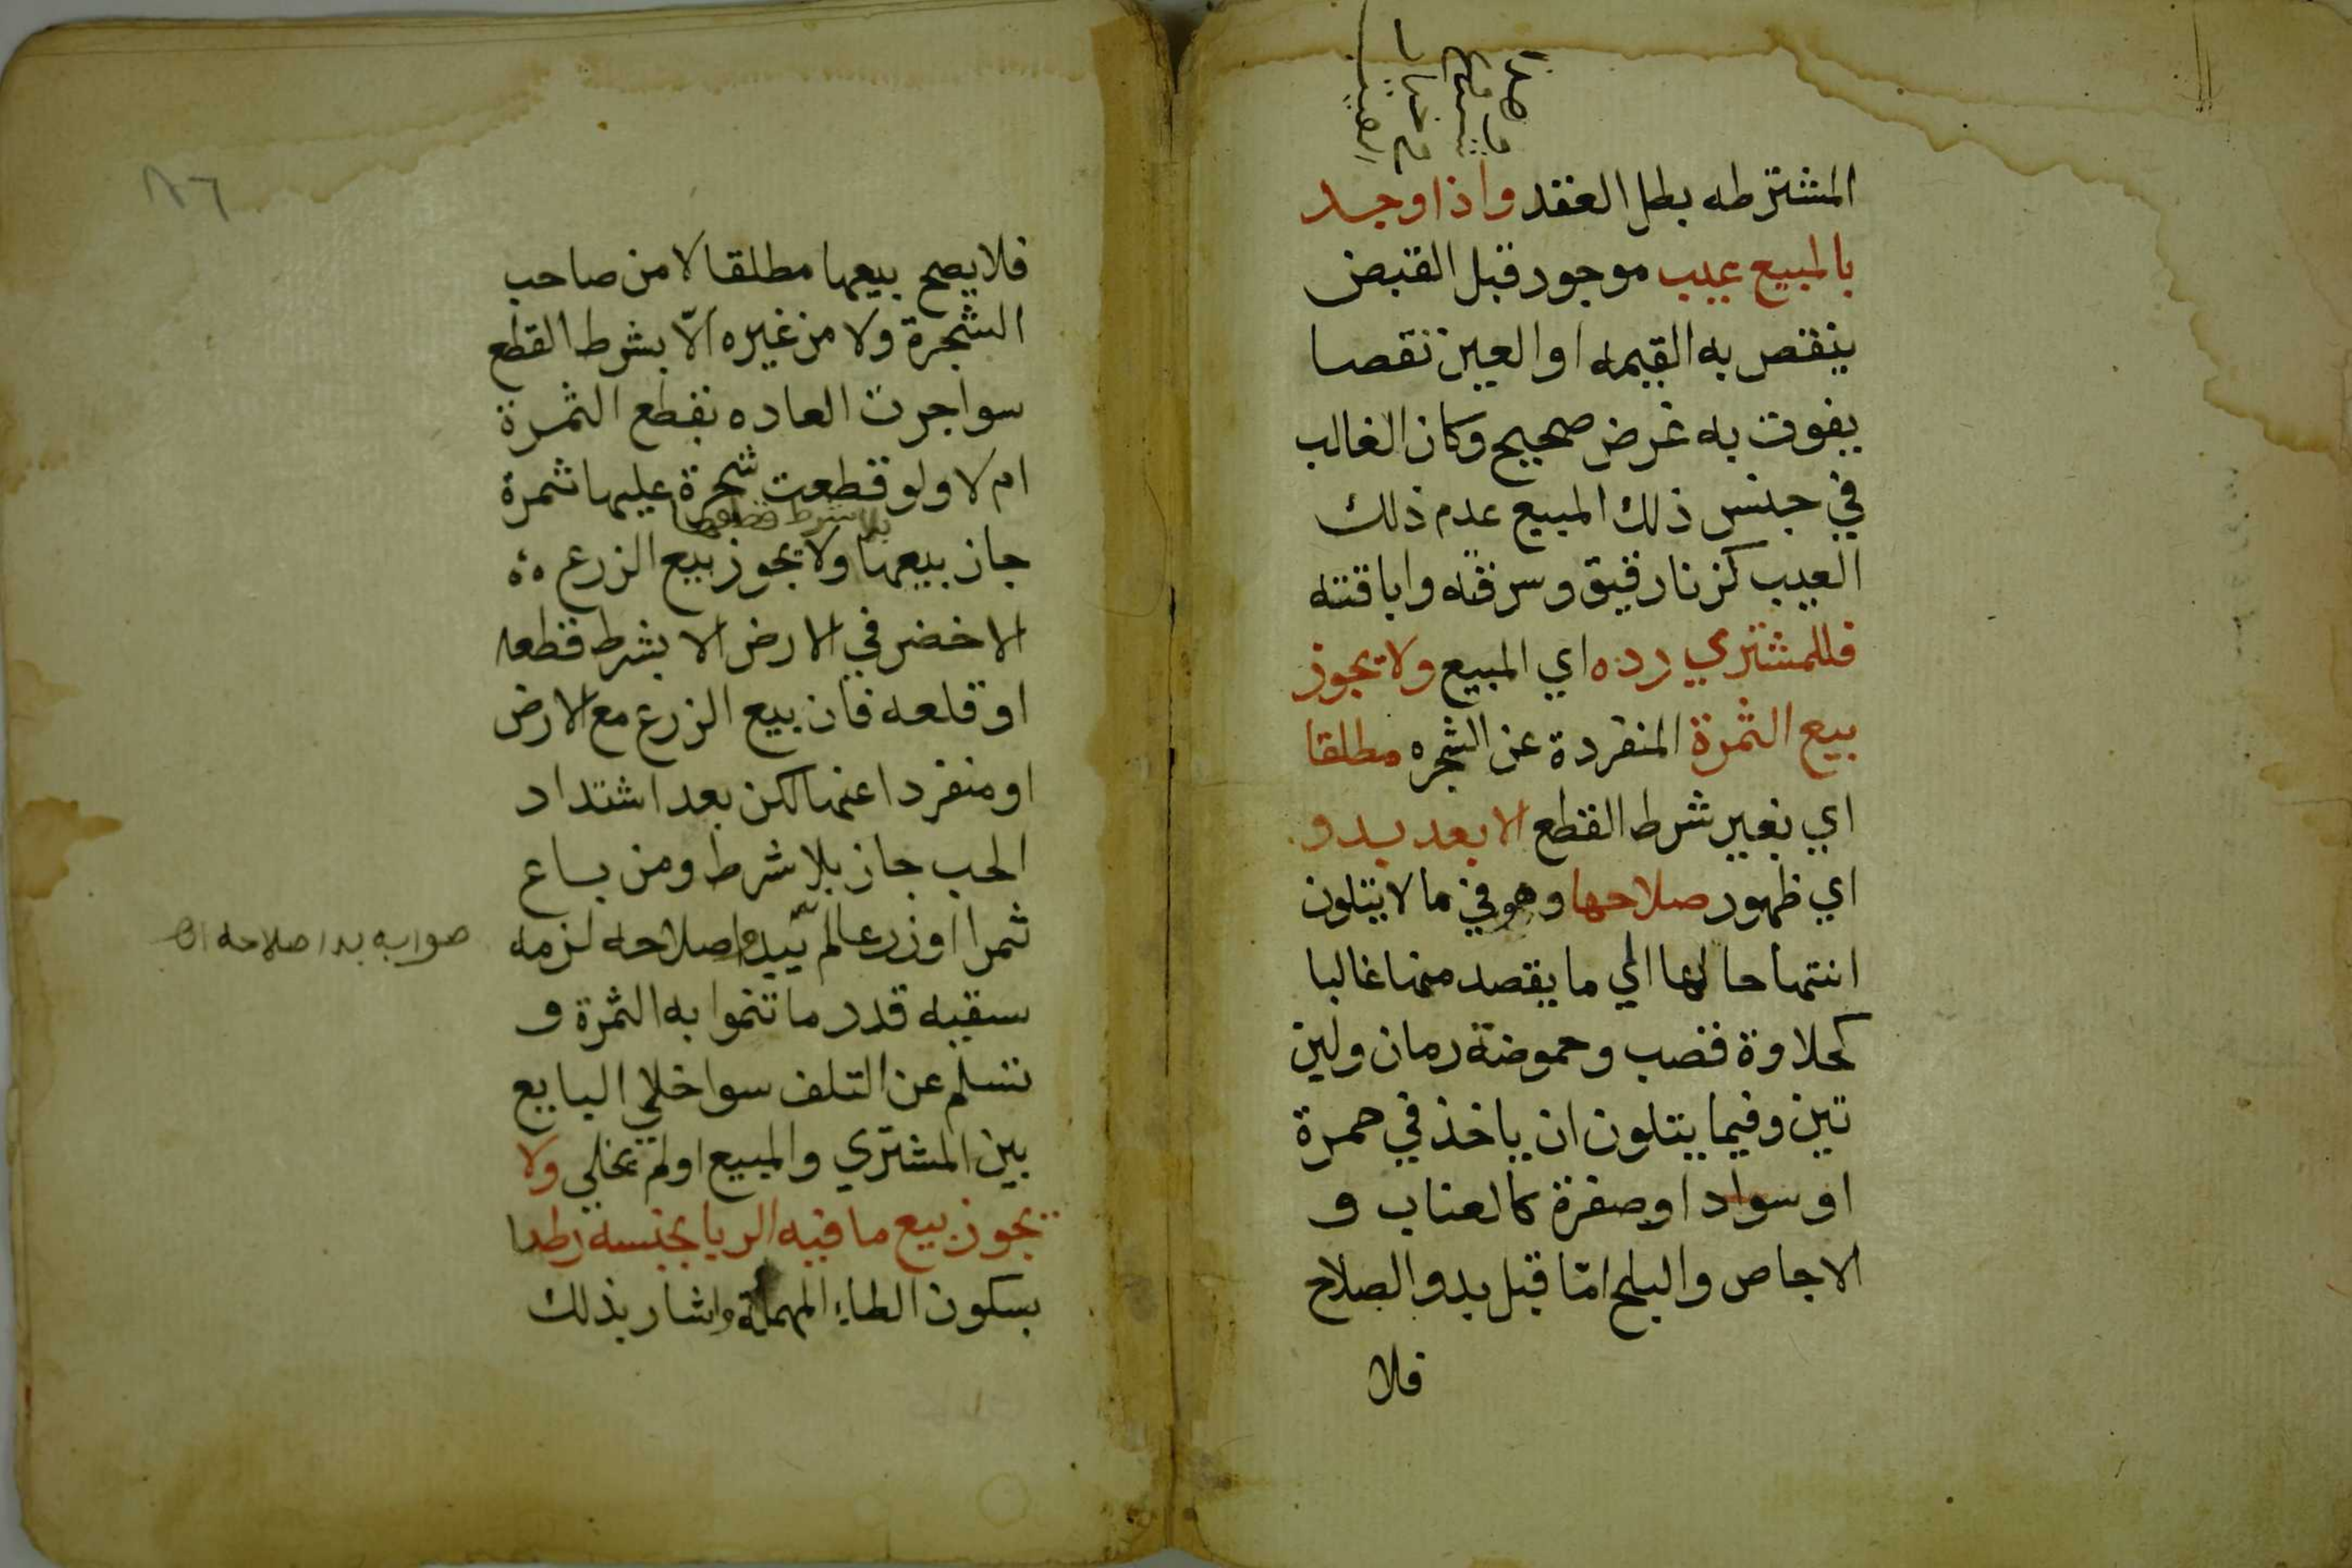 المشترطه بطل العقد واذا وجد
بالمبيع عيب موجود قبل القبض
ينقص به القيمه او العين نقصا
يفوت به غرض صحيح وكان الغالب
في جنس ذلك المبيع عدم ذلك
العيب كزنا رقيق وسرقته واباقته
فللمشتري رده اي المبيع ولا يجوز
بيع الثمرة المنفردة عن الشجره مطلقا
اي بغير شرط القطع الا بعد بدو
اي ظهور صلاحها وهو في ما لا يتلون
انتها حالها الي ما يقصد منها غالبا
كحلاوة قصب وحموضة رمان ولين
تين وفيما يتلون ان ياخذ في حمرة
او سواد او صفرة كالعناب و
الاجاص والبلح امّا قبل بدو الصلاح
فلا
٨٦
فلا يصح بيعها مطلقا لا من صاحب
الشجرة ولا من غيره الّا بشرط القطع
سوا جرت العاده بقطع الثمرة
ام لا ولو قطعت شجرة عليها ثمرة
بلا شرط قطعها
جاز بيعها ولا يجوز بيع الزرع
الاخضر في الارض الا بشرط قطعه
او قلعه فان بيع الزرع مع الارض
او منفردا عنها لكن بعد اشتداد
الحب جاز بلا شرط ومن باع
ثمرا او زرعا لم يبدو صلاحه لزمه
صوابه بدا صلاحه
سقيه قدر ما تنموا به الثمرة و
تسلم عن التلف سوا خلي البايع
بين المشتري والمبيع او لم يخلي ولا
يجوز بيع ما فيه الربا بجنسه رطبا
بسكون الطاء المهملة واشار بذلك